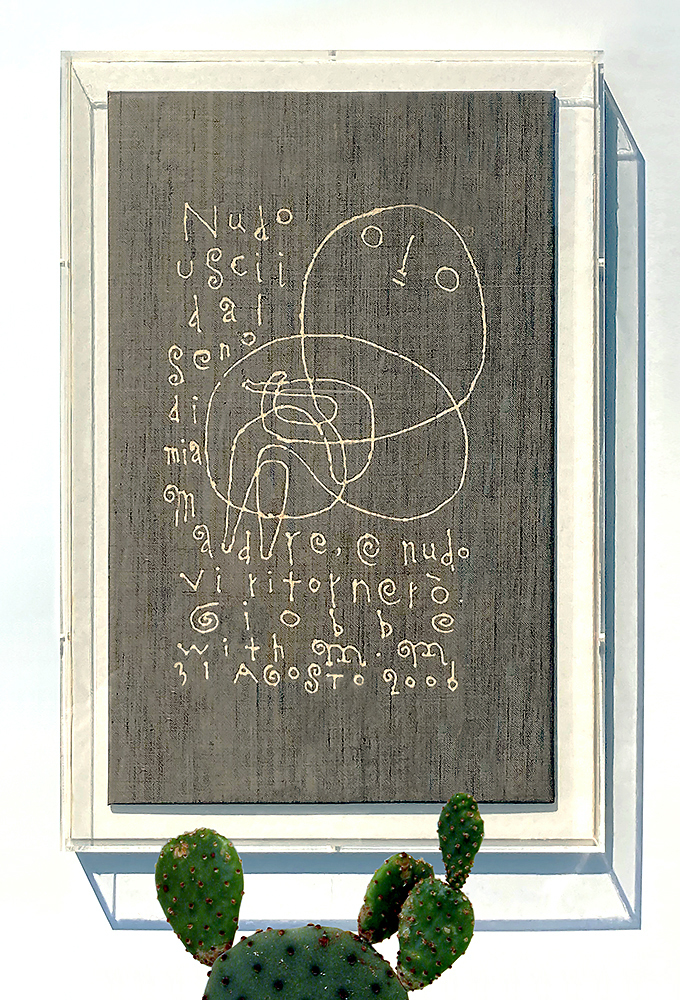 Nudo
uscii
dal
seno
di
mia
m
adre, e nudo
vi ritornerò.
Giobbe
with m. m
31 AGOSTO 2006